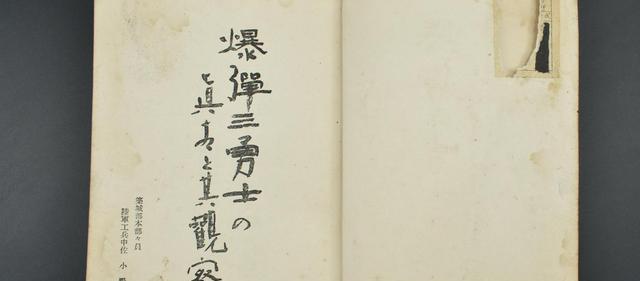 爆彈三勇士の
眞相と其觀察
築城部本部々員
陸軍工兵中佐 小